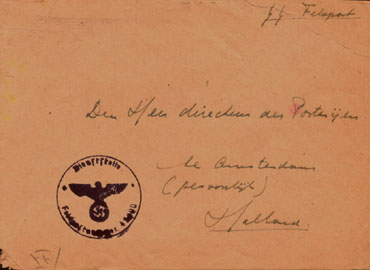 SS Feldpost
Den Heer directeur der Posterijen
te Amsterdam
(persoonlijk)
Holland.
Dienststelle